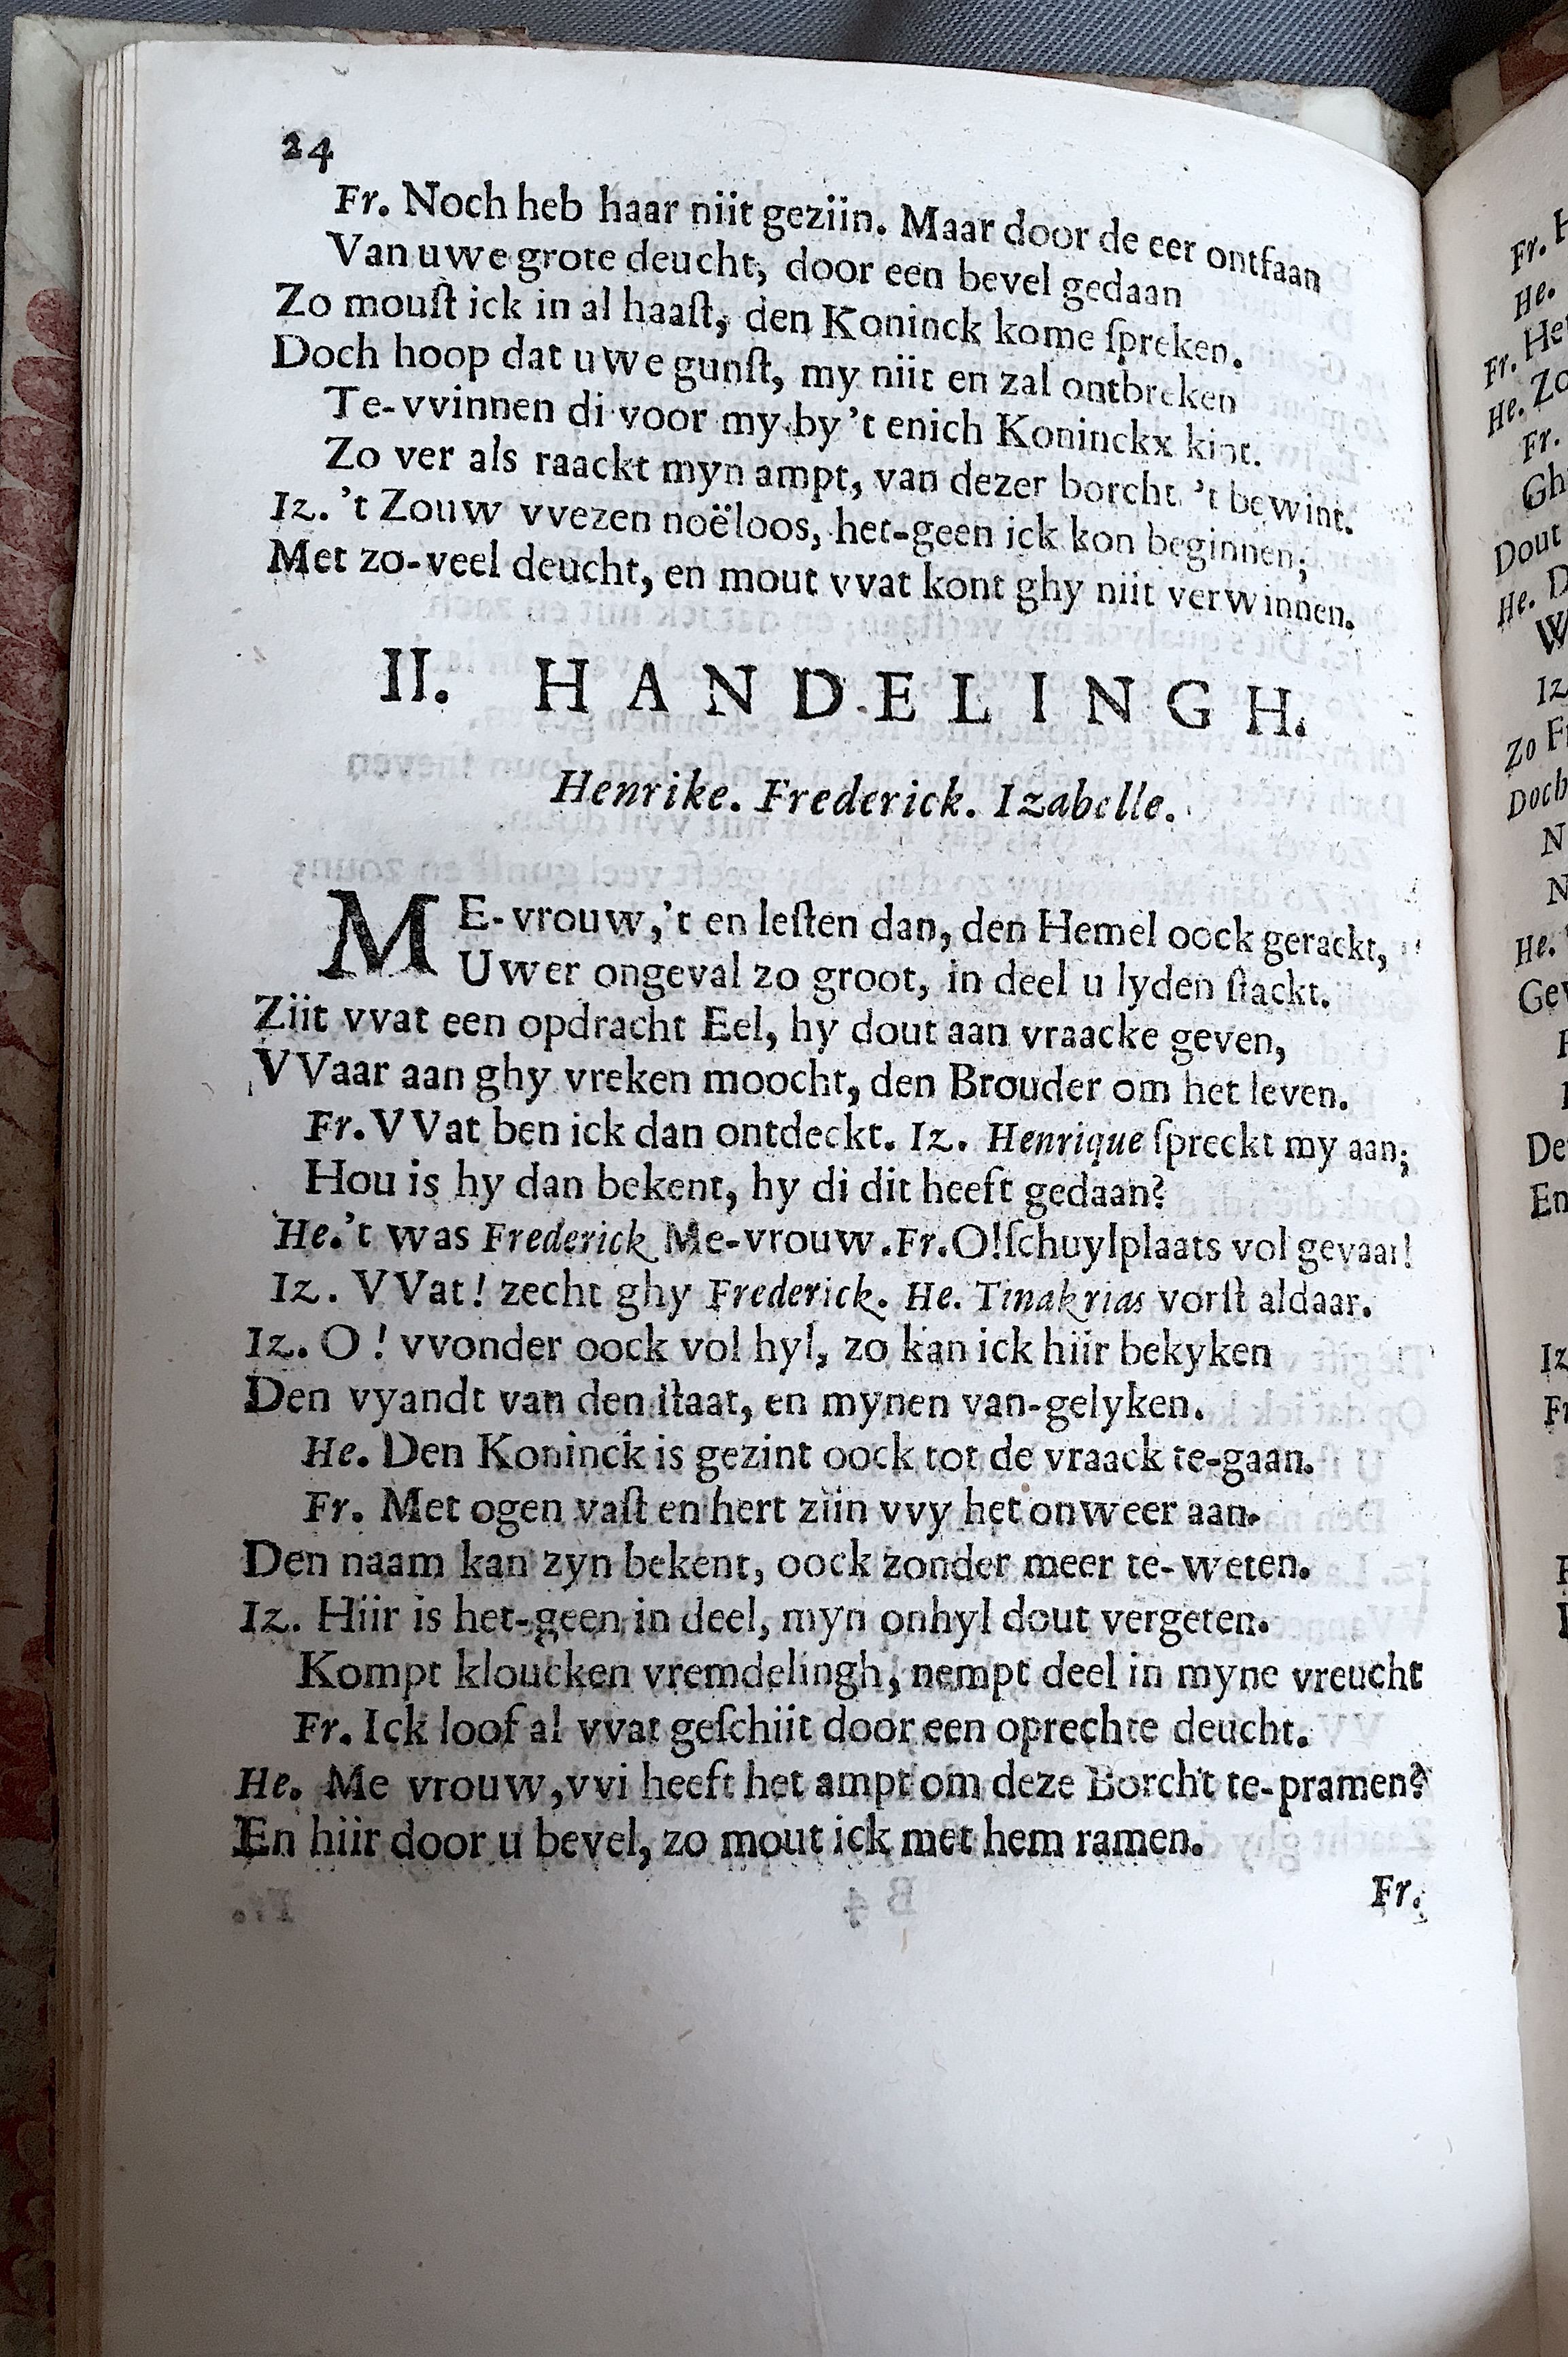 24
Fr. Noch heb haar niit geziin. Maar door de eer ontfaan
Van uwe grote deucht, door een bevel gedaan
Zo mouſt ick in al haaſt, den Koninck kome ſpreken.
Doch hoop dat uwe gunſt, my niit en zal ontbreken
Te-vvinnen di voor my by 't enich Koninckx kint.
Zo ver als raackt myn ampt, van dezer borcht 't bewint.
Iz. 't Zouw vvezen noëloos, het-geen ick kon beginnen;
Met zo-veel deucht, en mout vvat kont ghy niit verwinnen.
II. HANDELINGH.
Henrike. Frederick. Izabelle.
ME-vrouw,'t en leſten dan, den Hemel oock gerackt,
Uwer ongeval zo groot, in deel u lyden ſtackt.
Ziit vvat een opdracht Eel, hy dout aan vraacke geven,
VVaar aan ghy vreken moocht, den Brouder om het leven.
Fr. VVat ben ick dan ontdeckt. Iz. Henrique ſpreckt my aan;
Hou is hy dan bekent, hy di dit heeft gedaan?
He.'t was Frederick Me-vrouw. Fr. O!ſchuylplaats vol gevaar!
Iz. VVat! zecht ghy Frederick. He. Tinakrias vorſt aldaar.
Iz. O! vvonder oock vol hyl, zo kan ick hiir bekyken
Den vyandt van den ſtaat, en mynen van-gelyken.
He. Den Koninck is gezint oock tot de vraack te-gaan.
Fr. Met ogen vaſt en hert ziin vvy het onweer aan.
Den naam kan zyn bekent, oock zonder meer te-weten.
Iz. Hiir is het-geen in deel, myn onhyl dout vergeten.
Kompt kloucken vremdelingh, nempt deel in myne vreucht
Fr. Ick loof al vvat geſchiit door een oprechte deucht.
He. Me vrouw, vvi heeft het ampt om deze Borcht te-pramen?
En hiir door u bevel, zo mout ick met hem ramen.
Fr.
Fr. H
He.
Fr. He
He. Zo
Fr.
Gh
Dout
He. D
W
Iz
Zo F
Doch
N
N
He.
Gev
De
En
Iz
Fr